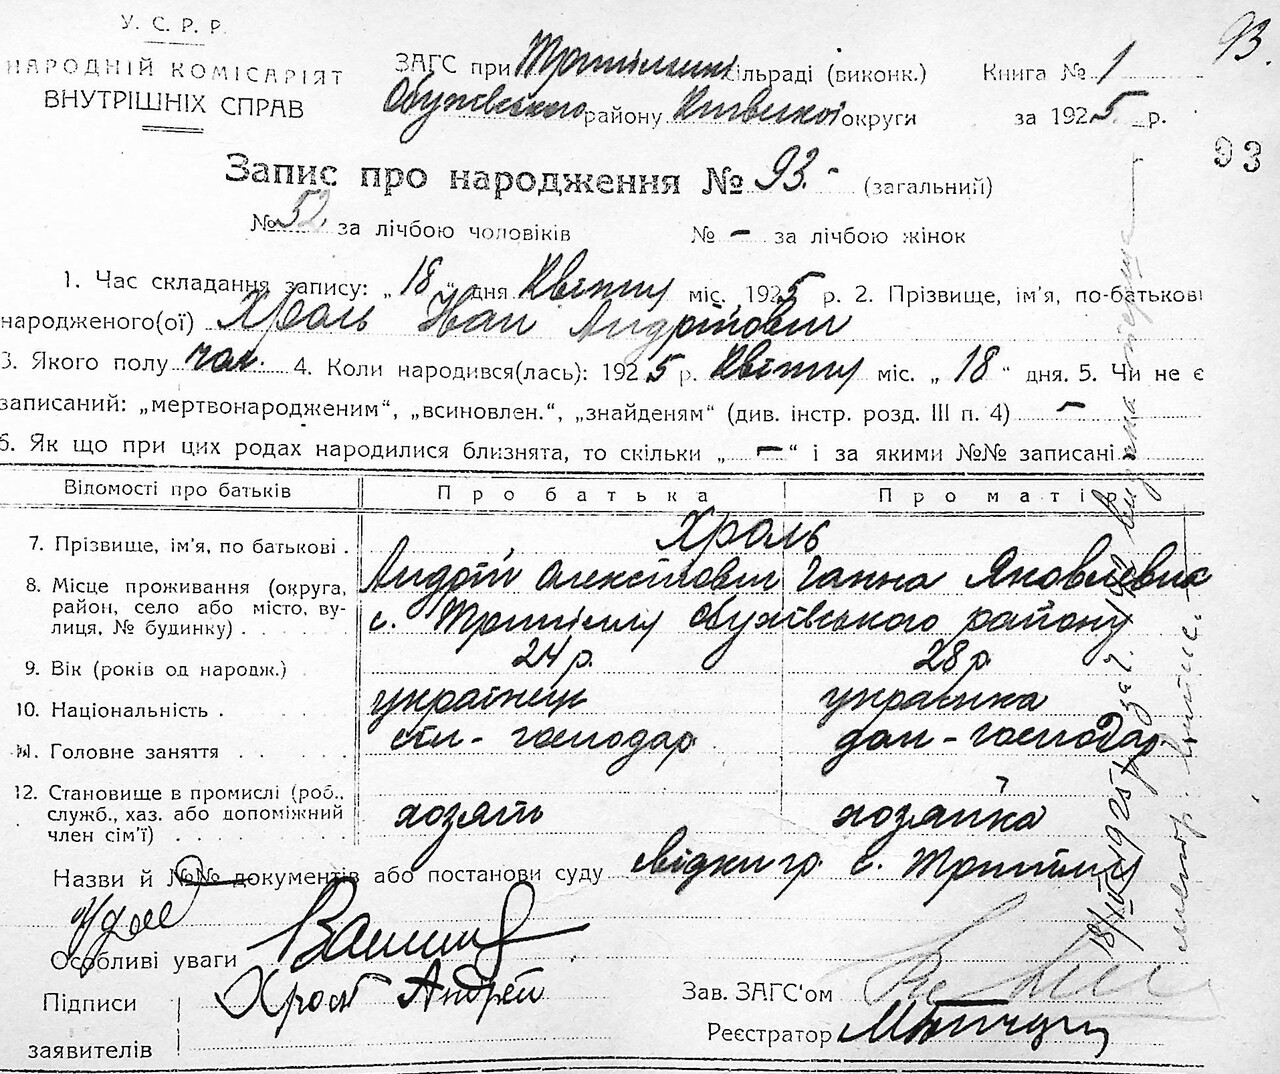 93.
У. С. Р. Р.
НАРОДНІЙ КОМІСАРІЯТ
ВНУТРІШНІХ СПРАВ
ЗАГС при сільраді (виконк.) Книга № 1
Обухівського району Київської округи за 1925 р.
93
Запис про народження № 93.- (загальний)
№ 52 за лічбою чоловіків № – за лічбою жінок
1. Час складання запису: „18“ дня Квітня міс. 1925 р. 2. Прізвище, ім'я, по-батькові
народженого(ої) Хроль Иван Андрійович
3. Якого полу чол. 4. Коли народився(лась): 1925 р. Квітня міс. „18“ дня. 5. Чи не є
записаний: „мертвонародженим“, „всиновлен.“, „знайденям“ (див. інстр. розд. III п. 4) –
6. Як що при цих родах народилися близнята, то скільки „ – “ і за якими №№ записані
Відомості про батьків Про батька Про матір
7. Прізвище, ім'я, по батькові . Хроль
Андрій Олексійович Ганна Яковлевна
8. Місце проживання (округа,
район, село або місто, ву-
лиця, № будинку) . . . . . с. Трипілля Обухівського району
9. Вік (років од народж.) 24 р. 28 р.
10. Національність . українець українка
11. Головне заняття сіл-господар дом-господар
12. Становище в промислі (роб.,
служб., хаз. або допоміжний
член сім'ї) хозяїн хозяйка
Назви й №№ документів або постанови суду с. Трипілля
Особливі уваги
Підписи Хроль Андрей
заявителів
Зав. ЗАГС'ом
Реєстратор
18/IV 1925 р.